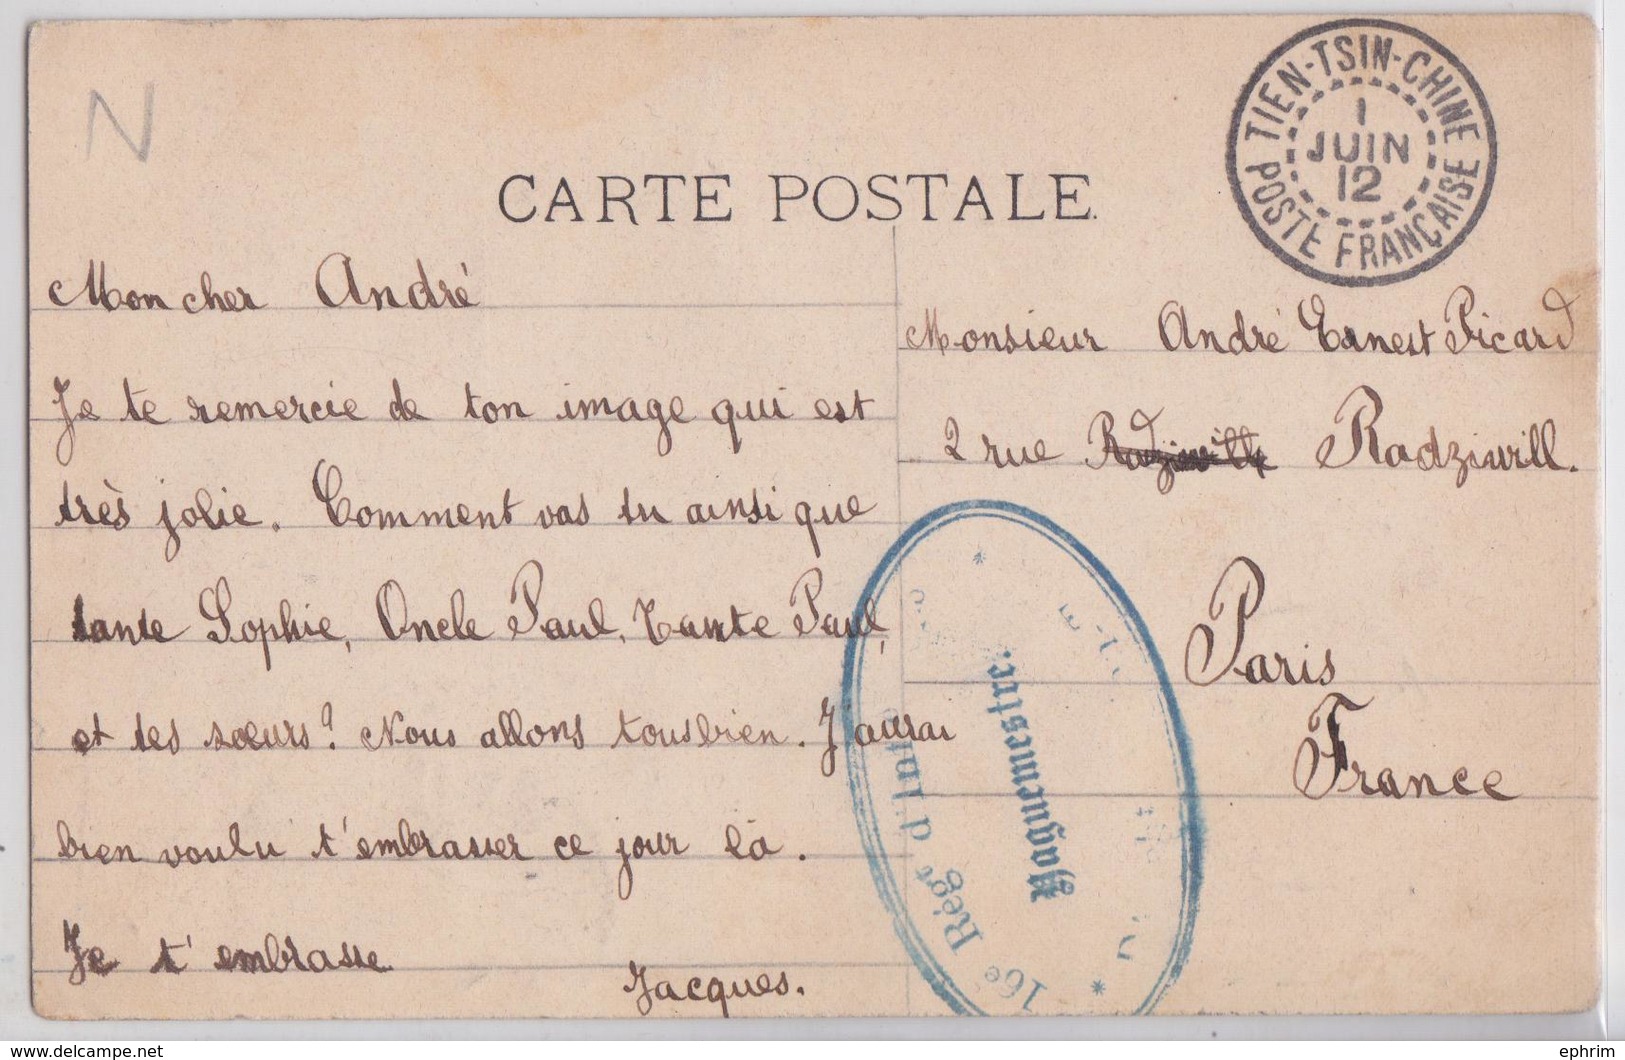 N
TIEN-TSIN-CHINE
1
JUIN
12
POSTE FRANÇAISE
CARTE POSTALE.
Mon cher André
Je te remercie de ton image qui est
très jolie. Comment vas tu ainsi que
tante Sophie, Oncle Paul, Tante Paul,
et tes sœurs? Nous allons tous bien. J'aurai
bien voulu t'embrasser ce jour là.
Je t'embrasse
Jacques.
Monsieur André Ernest Picard
2 rue Radziwill.
Paris
France
16e Régt d'Inf
Vaguemestre.
delcampe.net
ephrim